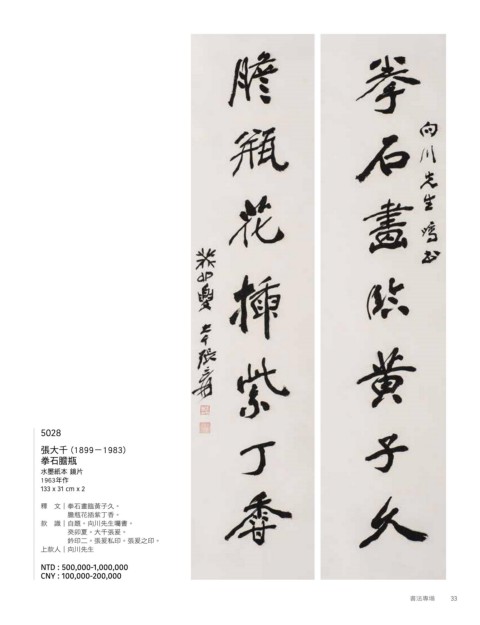 拳石畫臨黃子久
向川先生囑書
膽瓶花插紫丁香
癸卯夏 大千張爰
5028
張大千(1899－1983)
拳石膽瓶
水墨紙本 鏡片
1963年作
133 x 31 cm x 2
釋　文｜拳石畫臨黃子久，
膽瓶花插紫丁香。
款　識｜自題，向川先生囑書，
癸卯夏，大千張爰。
鈐印二，張爰私印，張爰之印。
上款人｜向川先生
NTD : 500,000-1,000,000
CNY : 100,000-200,000
書法專場　33